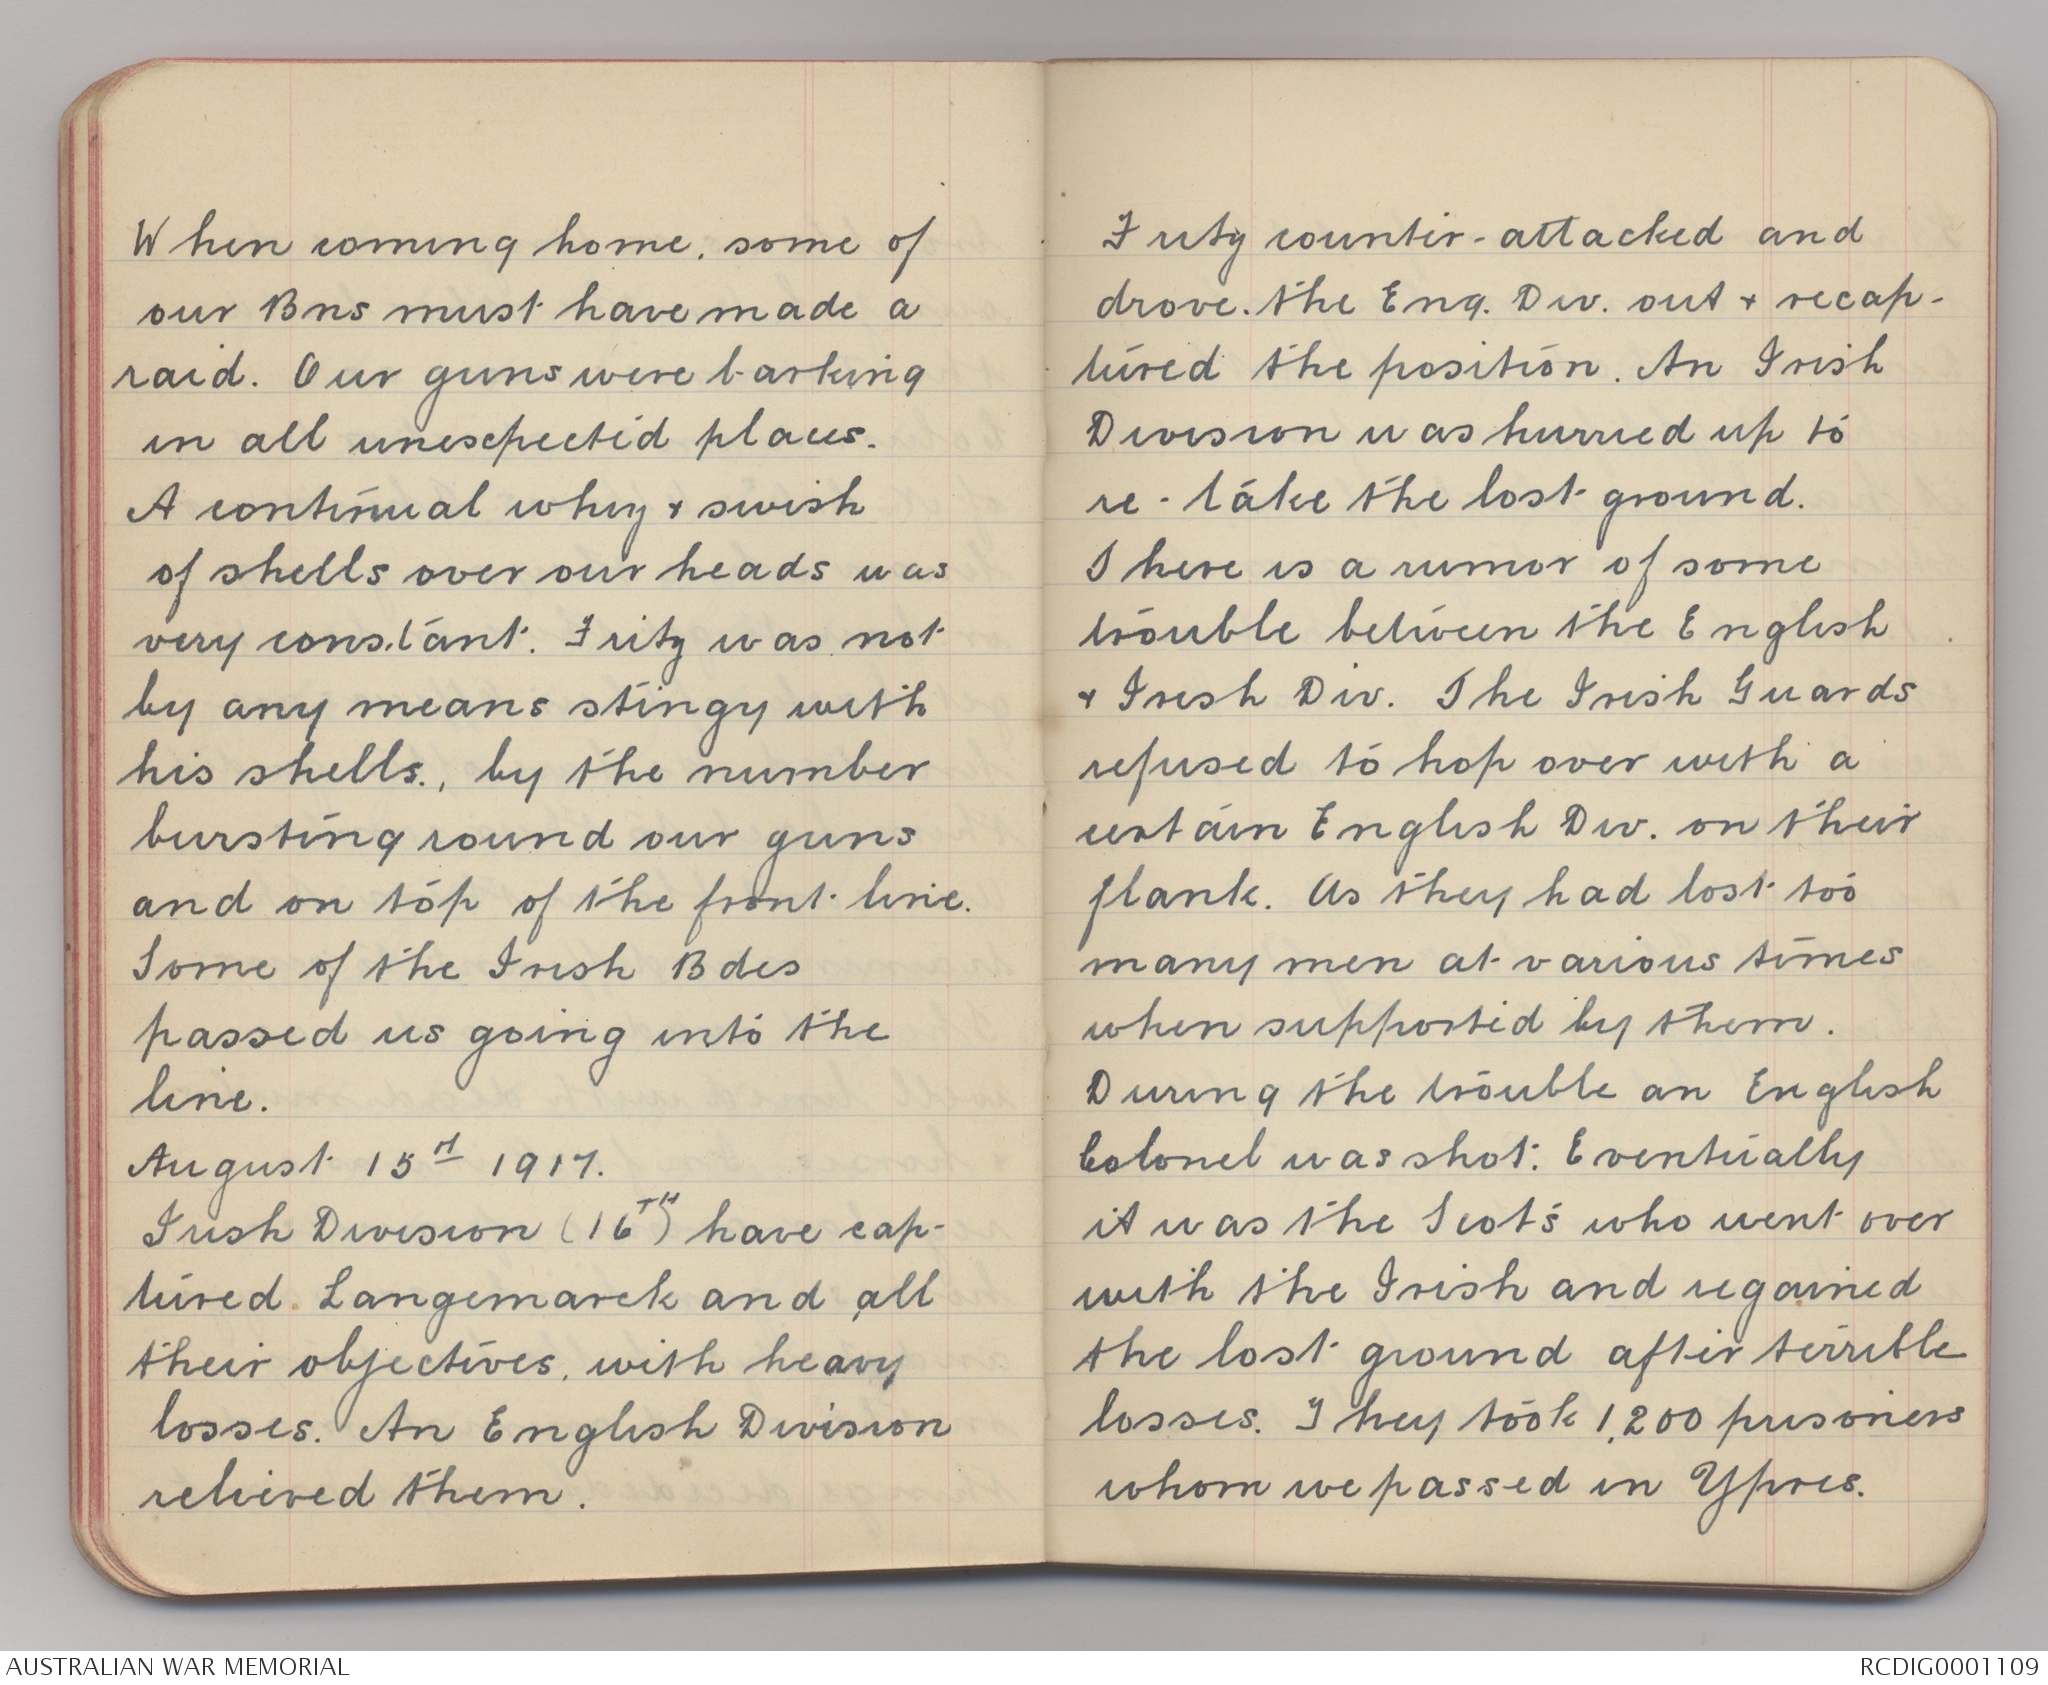 When coming home, some of
our Bns must have made a
raid. Our guns were barking
in all unexpected places.
A continual whizz & swish
of shells over our heads was
very constant. Fritz was not
by any means stingy with
his shells., by the number
bursting round our guns
and on top of the front line.
Some of the Irish Bdes
passed us going into the
line.
August 15th 1917.
Irish Division (16TH) have cap-
tured Langemarck and all
their objectives, with heavy
losses. An English Division
relieved them.
Fritz counter-attacked and
drove the Eng. Div. out & recap-
tured the position. An Irish
Division was hurried up to
re-take the lost ground.
There is a rumor of some
trouble between the English
& Irish Div. The Irish Guards
refused to hop over with a
certain English Div. on their
flank. As they had lost too
many men at various times
when supported by them.
During the trouble an English
Colonel was shot. Eventually
it was the Scots who went over
with the Irish and regained
the lost ground after terrible
losses. They took 1,200 prisoners
whom we passed in Ypres.
AUSTRALIAN WAR MEMORIAL
RCDIG0001109